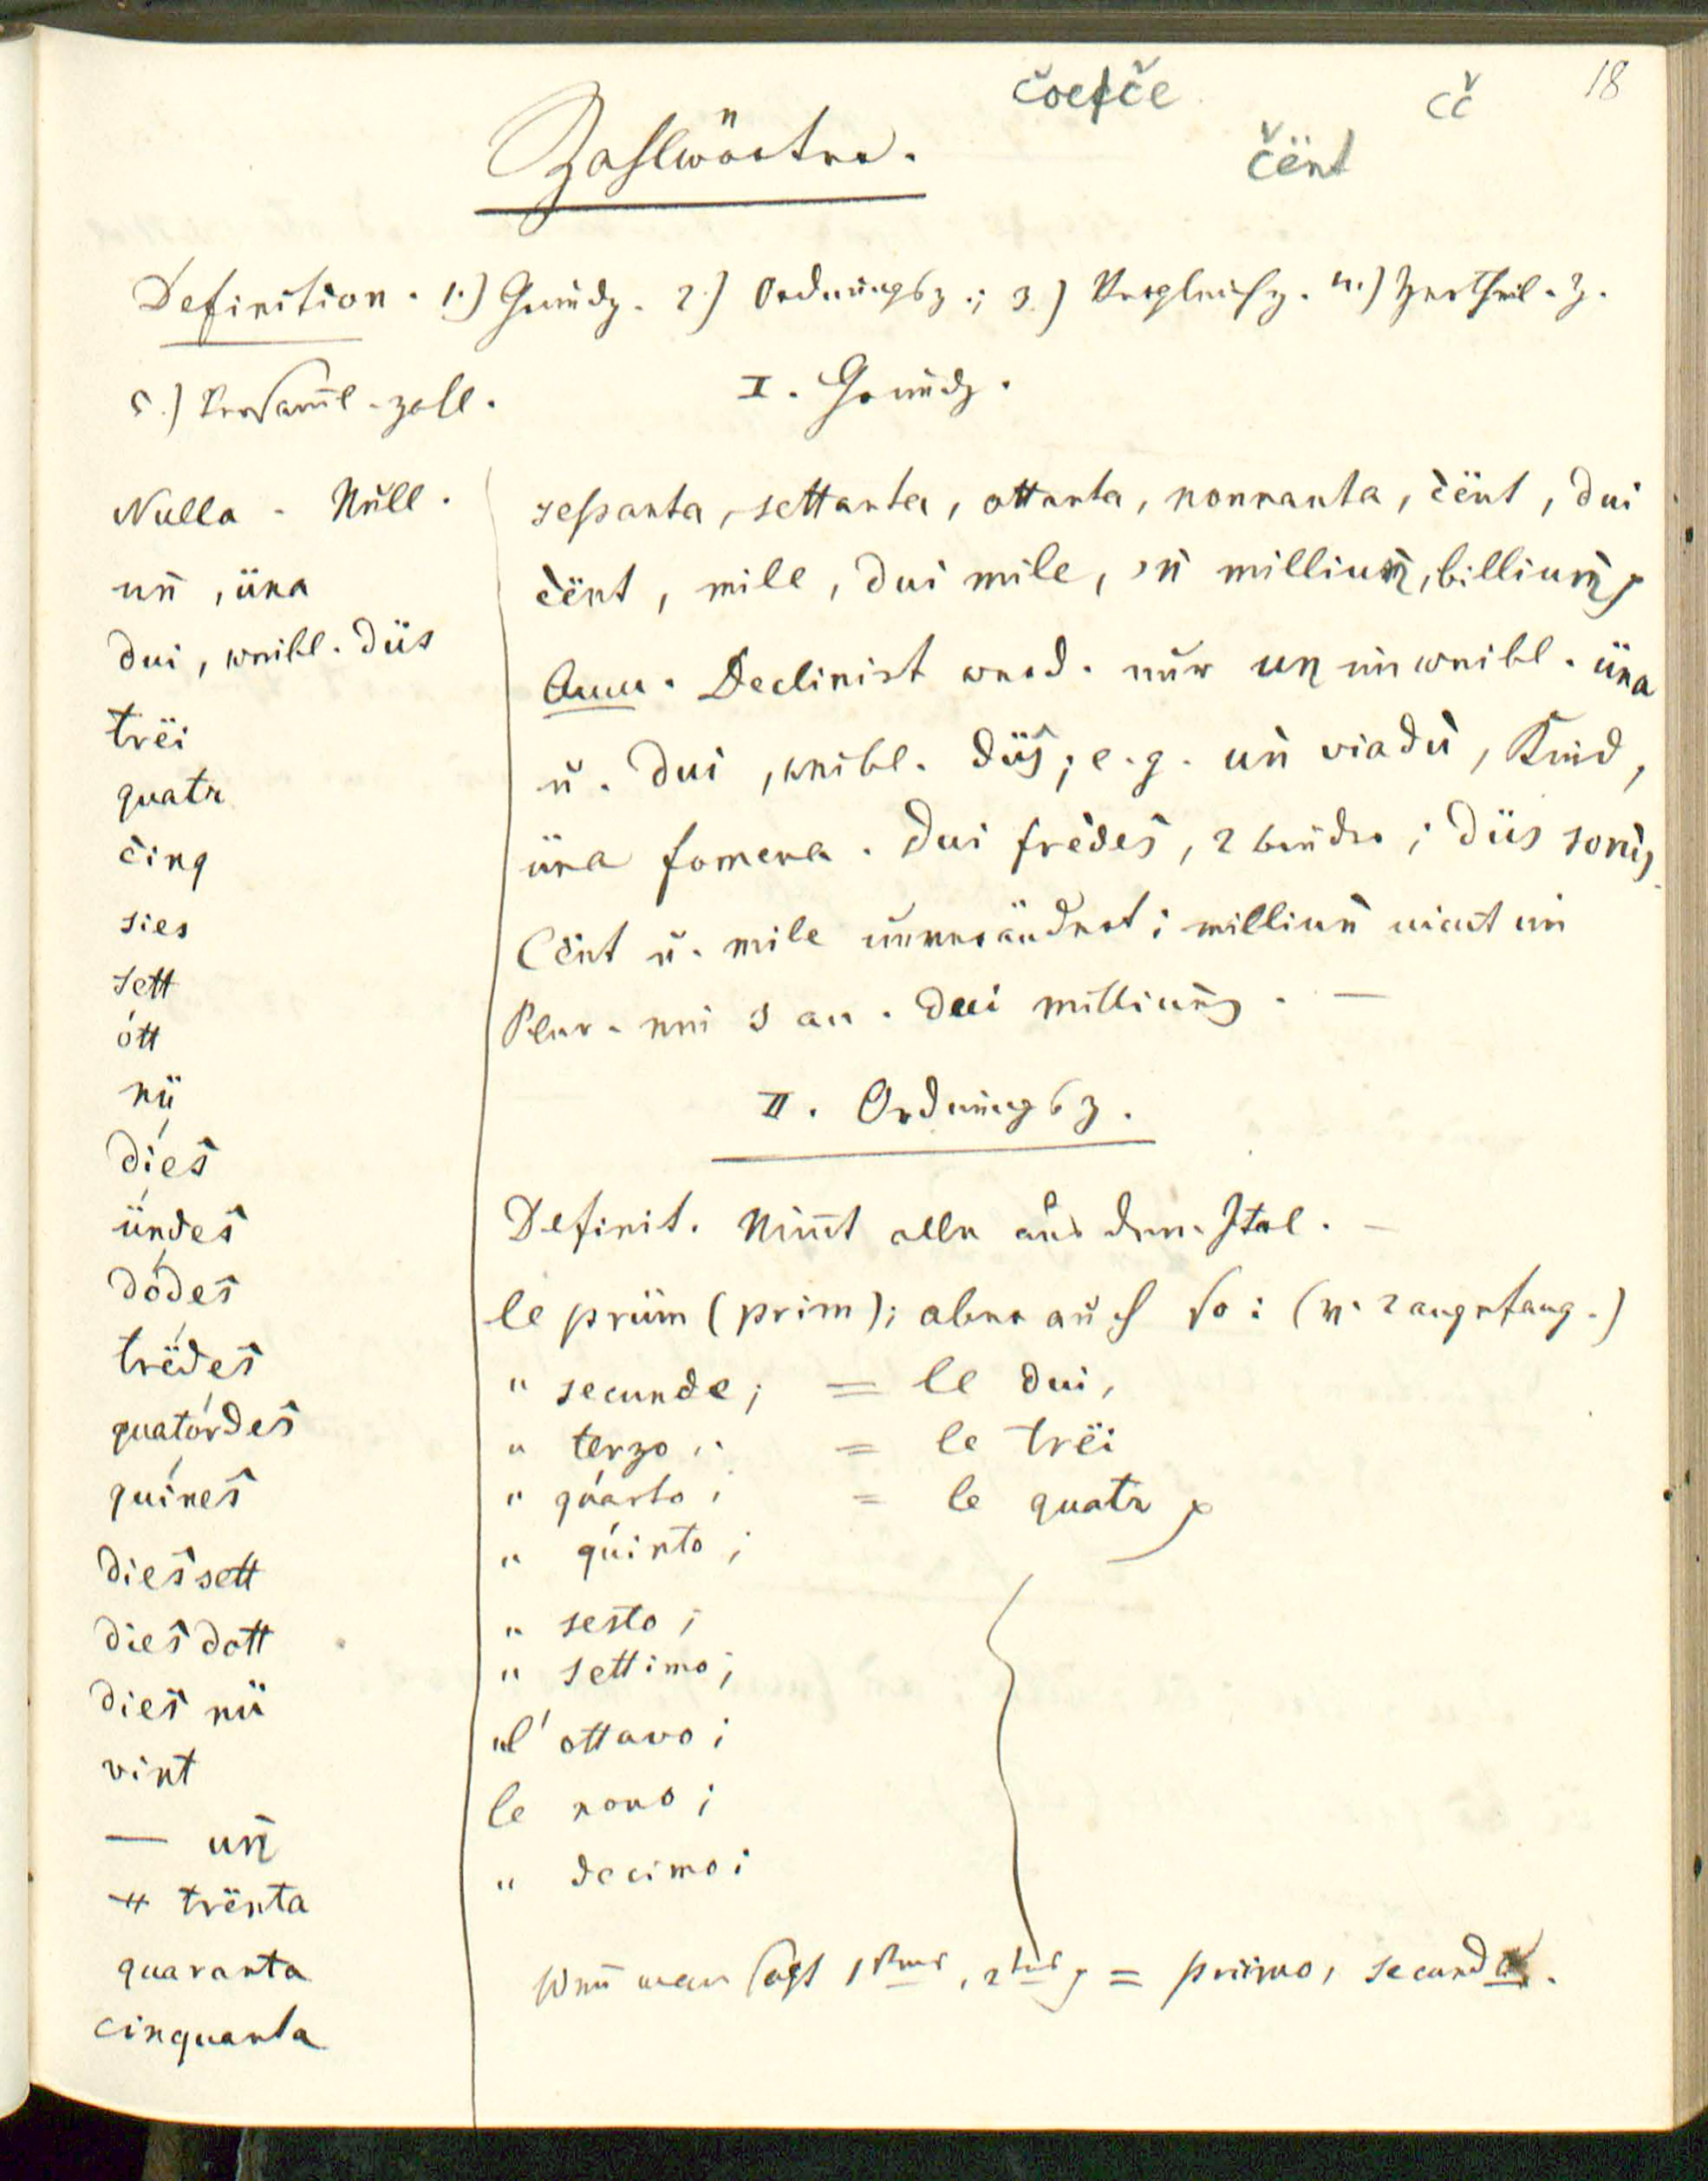 18
čoefče cč
čënt
Zahlwörter.
Definition. 1.) Grundz. 2.) Ordnungsz.; 3.) Vergleichz. 4.) Zertheil.z.
5.) Versam̄l-zahl.
I. Grundz.
Nulla - Null.
uṅ, üna
dui, weibl. düs
trëi
quatr
činq
sies
sett
ótt
nü
díeŝ
ündeŝ
dódeŝ
trëdeŝ
quatórdeŝ
quíneŝ
dieŝsett
dieŝdott
dieŝ nü
vint
— uṅ
trënta
quaranta
cinquanta
sessanta, settanta, ottanta, nonnanta, čënt, dui
čënt, mile, dui mile, 'ṅ milliuṅ, billiuṅ
Anm. Declinirt werd. nur uṅ im weibl. üna
u. dui, weibl. düŝ; e.g. uṅ viadù, Kind,
üna fomena. Dui frèdeŝ, 2 Brüder; düs
Cënt u. mile unverändert; milliuṅ nimt im
Plur. ein s an. Dui milliuṅs. —
II. Ordnungsz.
Definit. Nim̄t alle aus dem Ital. —
le prüm (prim); aber auch so: (v. 2 angefang.)
" secunde; = le dui,
" terzo; = le trëi
" quarto; = le quatr
" quinto;
" sesto;
" settimo;
"l' ottavo;
le nono;
" decimo;
Wen̄ man sagt 1stens, 2tens = priimo, secundo.